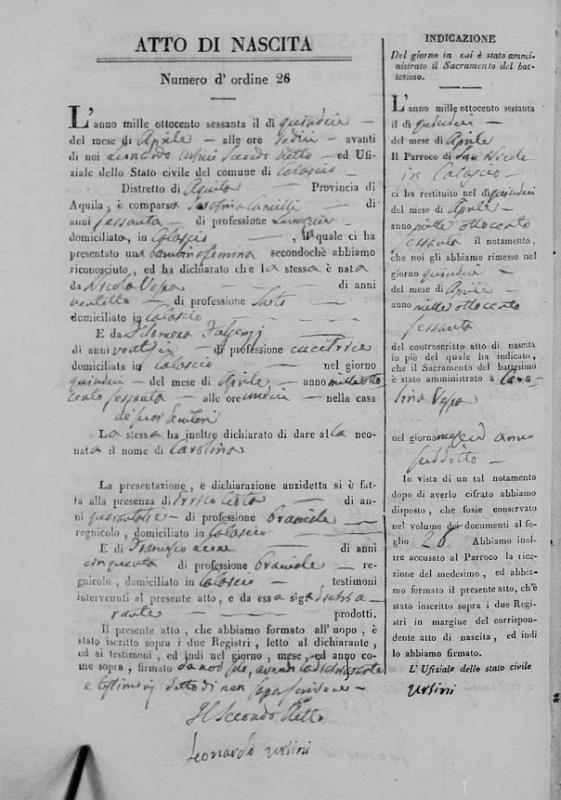 ATTO DI NASCITA
Numero d' ordine 26
L'anno mille ottocento sessanta il dì quindici —
del mese di Aprile — alle ore sedici — avanti
di noi Leonardo Ursini Secondo Eletto — ed Ufi-
ziale dello Stato civile del comune di Calascio —
Distretto di Aquila — Provincia di
Aquila, è comparsa — di
anni sessanta — di professione Levatrice
domiciliata, in Calascio — , la quale ci ha
presentato una bambina femina secondochè abbiamo
riconosciuto, ed ha dichiarato che la stessa è nata
da Nicola Vespa — di anni
ventotto — di professione Sarto —
domiciliato in Calascio —
E da Filomena —
di anni — di professione cucitrice
domiciliata in Calascio — nel giorno
quindici — del mese di Aprile — anno mille otto
cento sessanta — alle ore undici — nella casa
de' suoi Genitori
La stessa ha inoltre dichiarato di dare alla neo-
nata il nome di Carolina
La presentazione, e dichiarazione anzidetta si è fat-
ta alla presenza di — di an-
ni — di professione Bracciale
regnicolo, domiciliato in Calascio —
E di Francesco — di anni
cinquanta di professione Bracciale — re-
gnicolo, domiciliato in Calascio — testimoni
intervenuti al presente atto, e da essa sig. dichia
rante — prodotti.
Il presente atto, che abbiamo formato all' uopo, è
stato inscritto sopra i due Registri, letto al dichiarante,
ed si testimoni, ed indi nel giorno, mese, ed anno co-
me sopra, firmato da noi avendo la dichiarante
e testimonj detto di non saper scrivere —
Il Secondo Eletto
Leonardo Ursini
INDICAZIONE
Del giorno in cui è stato ammi-
nistrato il Sacramento del bat-
tesimo.
L'anno mille ottocento sessanta
il dì quindici —
del mese di Aprile —
Il Parroco di San Nicola
in Calascio —
ci ha restituito nel dì quindici
del mese di Aprile —
anno mille ottocento
sessanta il notamento,
che noi gli abbiamo rimesso nel
giorno quindici —
del mese di Aprile —
anno mille ottocento
sessanta
del controscritto atto di nascita
in piè del quale ha indicato,
che il Sacramento del battesimo
è stato amministrato a Caro-
lina Vespa
nel giorno mese ed anno
suddetto —
In vista di un tal notamento
dopo di averlo cifrato abbiamo
disposto, che fosse conservato
nel volume dei documenti al fo-
glio 26 Abbiamo inol-
tre accusato al Parroco la rice-
zione del medesimo, ed abbia-
mo formato il presente atto, ch'è
stato inscritto sopra i due Regi-
stri in margine del corrispon-
dente atto di nascita, ed indi
lo abbiamo firmato.
L' Ufiziale dello stato civile
Ursini